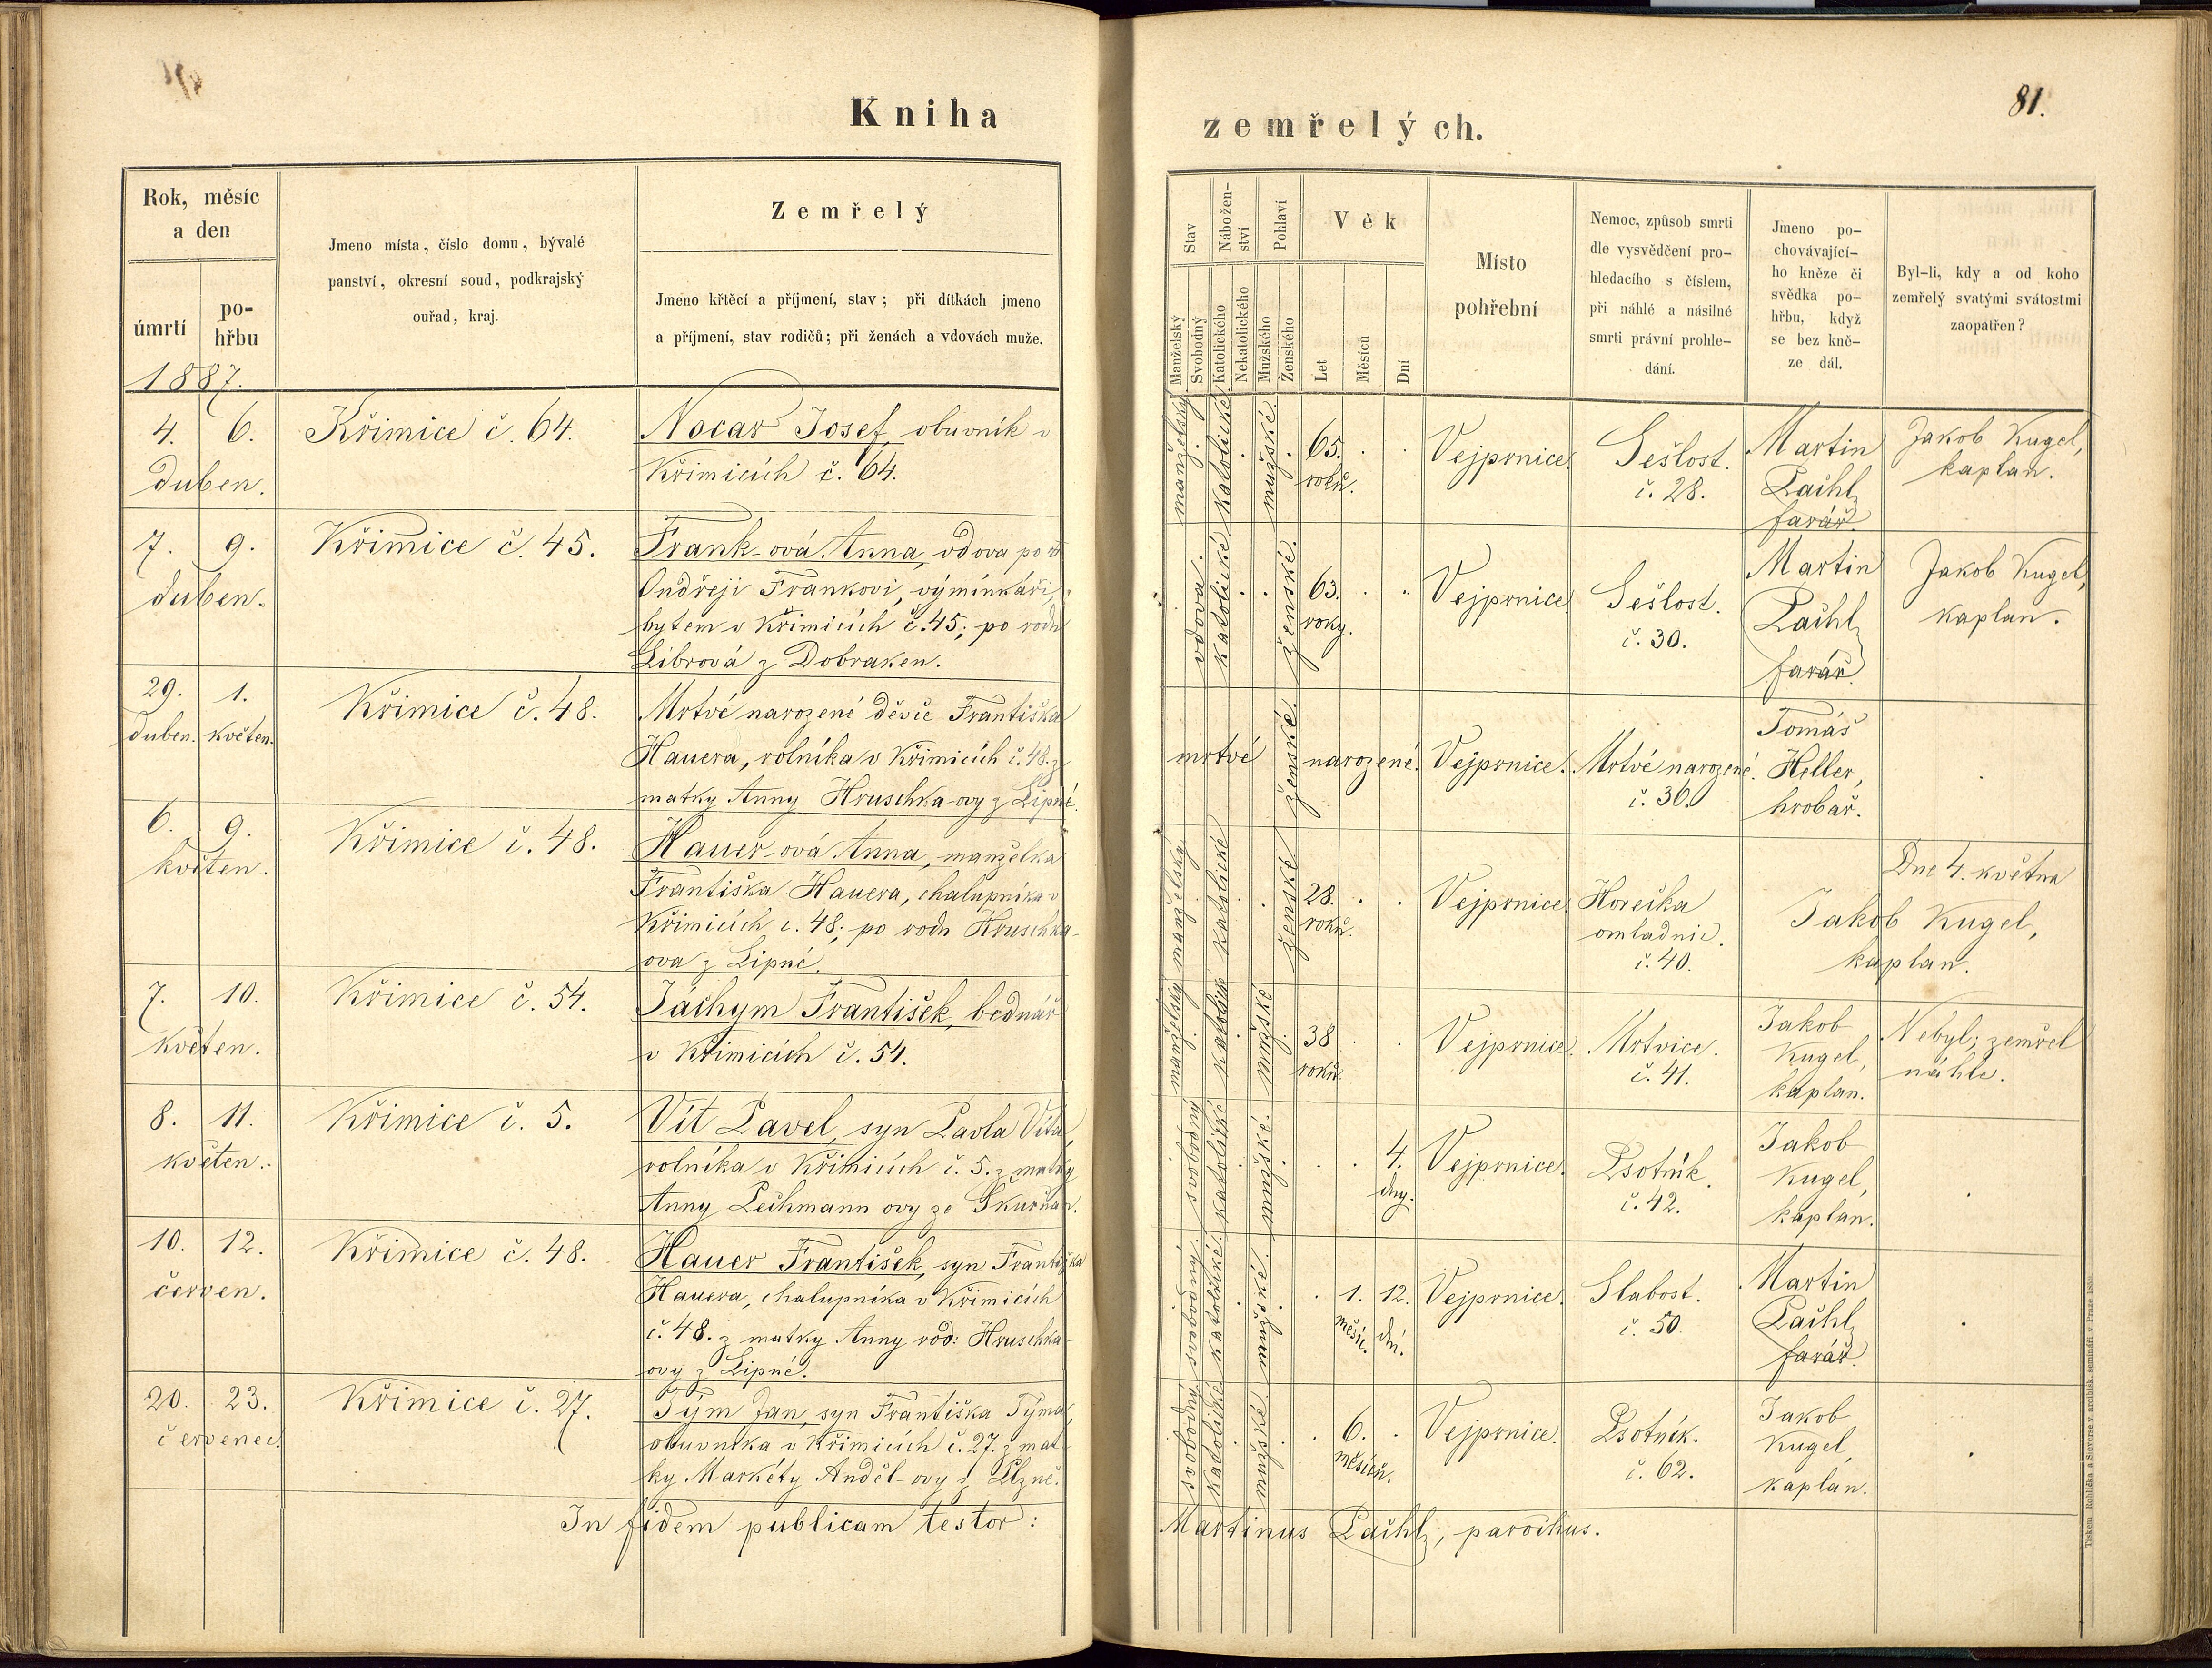 Kniha
Rok, měsíc
a den
úmrtí
po-
hřbu
Jmeno místa, číslo domu, bývalé
panství, okresní soud, podkrajský
ouřad, kraj.
Zemřelý
Jmeno křtěcí a příjmení, stav; při dítkách jmeno
a příjmení, stav rodičů; při ženách a vdovách muže.
1887.
4. 6.
duben.
Křimice č. 64.
Nocar Josef, obuvník v
Křimicích č. 64.
7. 9.
duben.
Křimice č. 45.
Frank-ová Anna, vdova po
Ondřeji Frankovi, výminkáři,
bytem v Křimicích č. 45; po rodu
Librová z Dobraken.
29. 1.
duben. květen.
Křimice č. 48.
Mrtvé narozené děvče Františka
Hauera, rolníka v Křimicích č. 48. z
matky Anny Hruschka-ovy z Lipné.
6. 9.
květen.
Křimice č. 48.
Hauer-ová Anna, manželka
Františka Hauera, chalupníka v
Křimicích č. 48; po rodu Hruschka-
ova z Lipné.
7. 10.
květen.
Křimice č. 54.
Jáchym František, bednář
v Křimicích č. 54.
8. 11.
květen.
Křimice č. 5.
Vít Pavel, syn Pavla Víta,
rolníka v Křimicích č. 5. z matky
Anny Pechmann ovy ze Škurňan.
10. 12.
červen.
Křimice č. 48.
Hauer František, syn Františka
Hauera, chalupníka v Křimicích
č. 48. z matky Anny rod: Hruschka-
ovy z Lipné.
20. 23.
červenec.
Křimice č. 27.
Tým Jan, syn Františka Týma,
obuvníka v Křimicích č. 27. z mat-
ky Markéty Anděl-ovy z Plzně.
In fidem publicam testor:
81.
zemřelých.
Stav
Manželský
Svobodný
Nábožen-
ství
Katolického
Nekatolického
Pohlaví
Mužského
Ženského
Věk
Let
Měsíců
Dní
Místo
pohřební
Nemoc, způsob smrti
dle vysvědčení pro-
hledacího s číslem,
při náhlé a násilné
smrti právní prohle-
dání.
Jmeno po-
chovávající-
ho kněze či
svědka po-
hřbu, když
se bez kně-
ze dál.
Byl-li, kdy a od koho
zemřelý svatými svátostmi
zaopatřen?
manželský. katolické. mužské.
65.
roků.
Vejprnice.
Sešlost.
č. 28.
Martin
Pachl,
farář.
Jakob Kugel,
kaplan.
vdova. katolické ženské.
63.
roky.
Vejprnice.
Sešlost.
č. 30.
Martin
Pachl,
farář.
Jakob Kugel,
kaplan.
mrtvé ženské. narozené.
Vejprnice.
Mrtvé narozené.
č. 36.
Tomáš
Heller,
hrobař.
manželský katolické ženské
28.
roků.
Vejprnice.
Horečka
omladnic.
č. 40.
Dne 4. května
Jakob Kugel,
kaplan.
manželský katolické mužské
38
roků.
Vejprnice.
Mrtvice.
č. 41.
Jakob
Kugel,
kaplan.
Nebyl; zemřel
náhle.
svobodný katolické mužské.
4.
dny.
Vejprnice.
Psotník.
č. 42.
Jakob
Kugel,
kaplan.
svobodný. katolické. mužské.
1. 12.
měsíc. dní.
Vejprnice.
Slabost.
č. 50.
Martin
Pachl,
farář.
svobodný katolické mužské
6.
měsíců.
Vejprnice.
Psotník.
č. 62.
Jakob
Kugel,
kaplan.
Martinus Pachl, parochus.